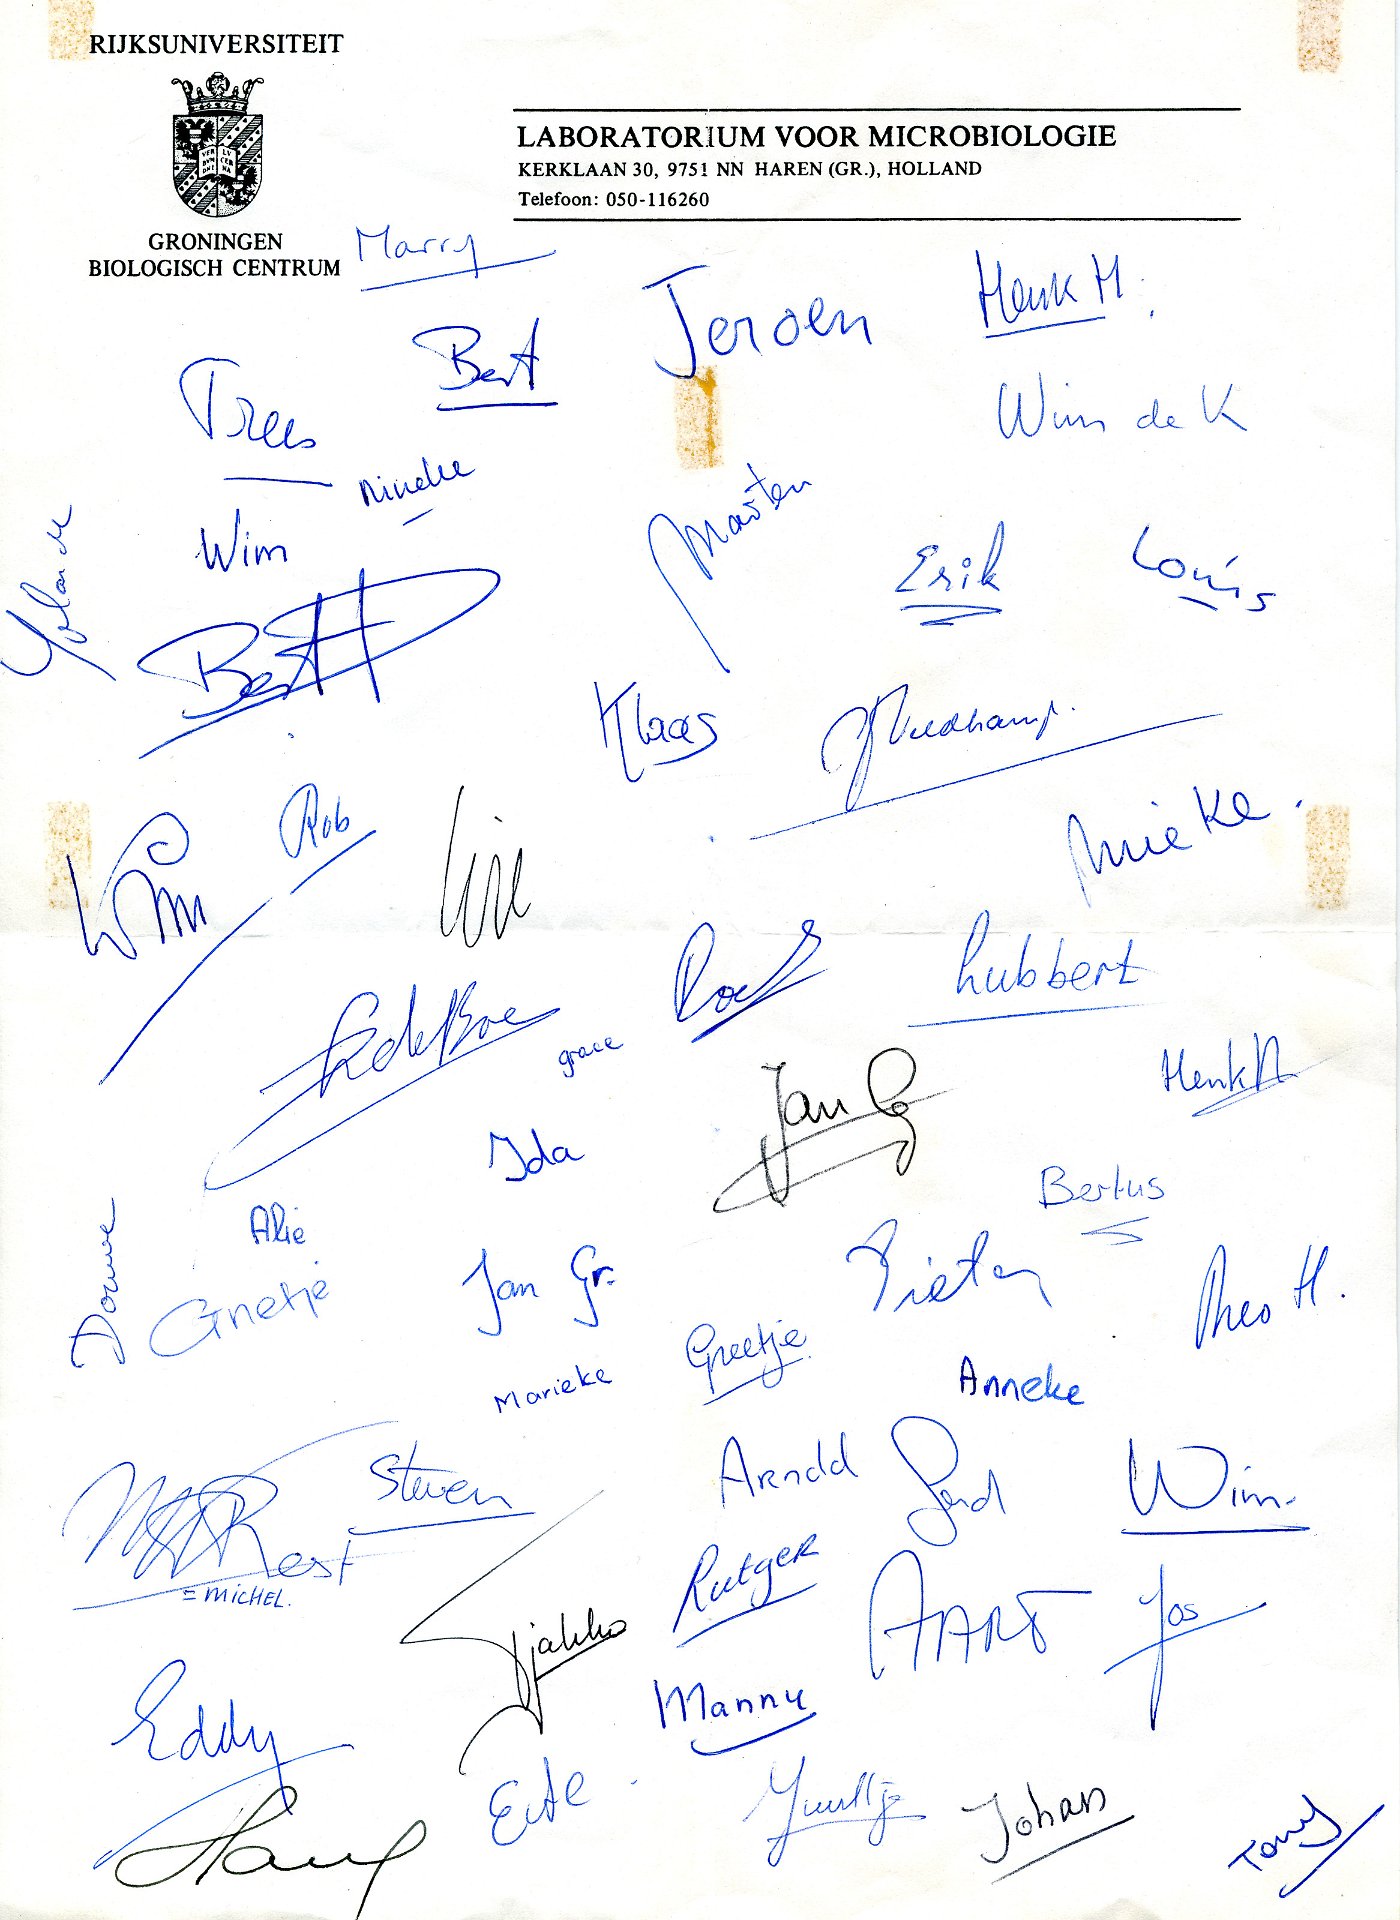 RIJKSUNIVERSITEIT
VER BVM DNI LV CER NA
GRONINGEN
BIOLOGISCH CENTRUM
LABORATORIUM VOOR MICROBIOLOGIE
KERKLAAN 30, 9751 NN HAREN (GR.), HOLLAND
Telefoon: 050-116260
Marry
Jeroen
Henk M.
Bert
Trees
Wim de K
Nineke
Maarten
Yolande
Wim
Erik
Louis
Bert H
Klaas
Rob
Wim
Mieke.
Roel
Lubbert
grace
Jan G
Henk N
Ida
Bertus
Alie
Douwe
Grietje
Jan Gr.
Pieter
Theo H.
Greetje
Marieke
Anneke
Steven
Arnold
Wim.
Rest
= MICHEL.
Rutger
AART
Jos
Tjakko
Eddy
Manny
Johan
Tony